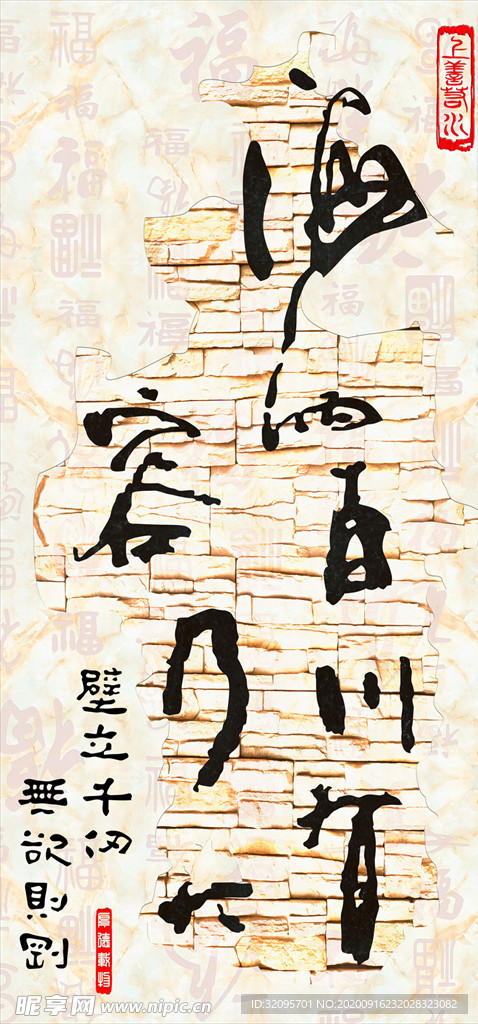 上善若水
海納百川有
容乃大
壁立千仞
無欲則剛
厚德載物
福
昵享网 www.nipic.cn
ID:32095701 NO:20200916232028323082